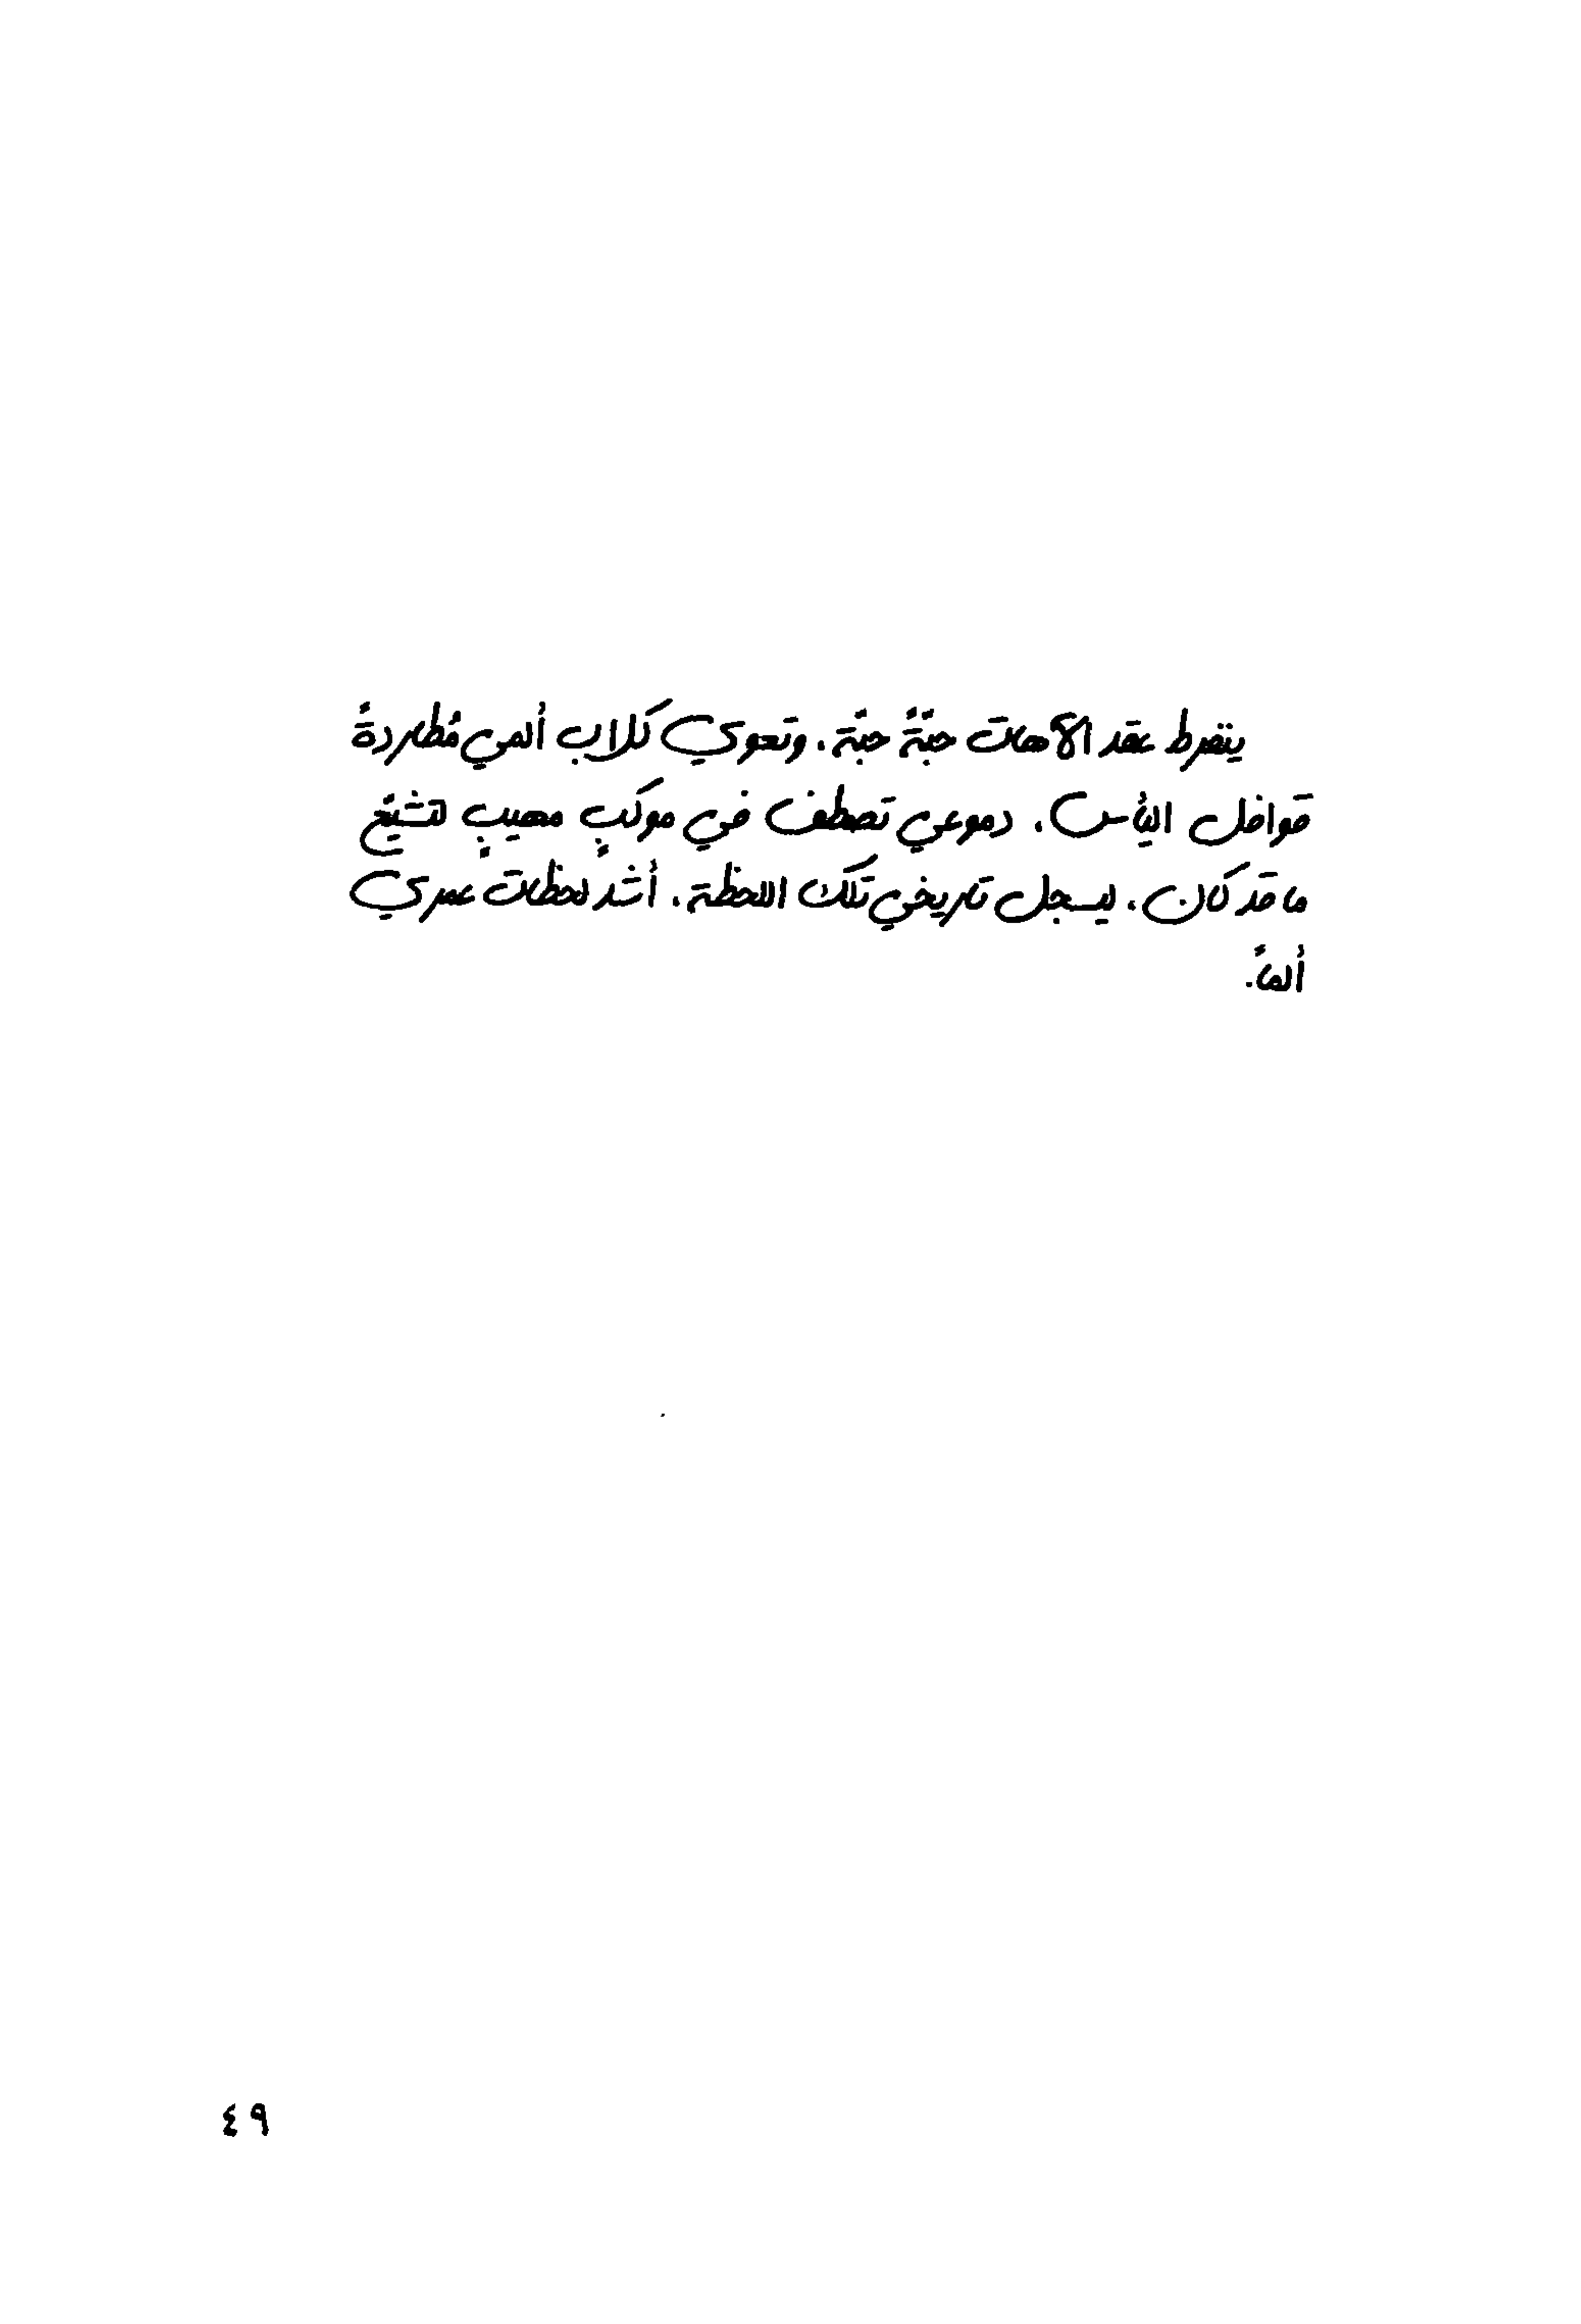 ينفرط عقد الآهات حبّةً حبّة. وتعوي كلاب ألمي مُطاردةً
قوافل اليأس. دموعي تصطف في موكبٍ مهيبٍ لتشيّع
ما قد كان. ليسجل تاريخي تلك اللحظة. أشدّ لحظات عمري
ألماً.
٤٩